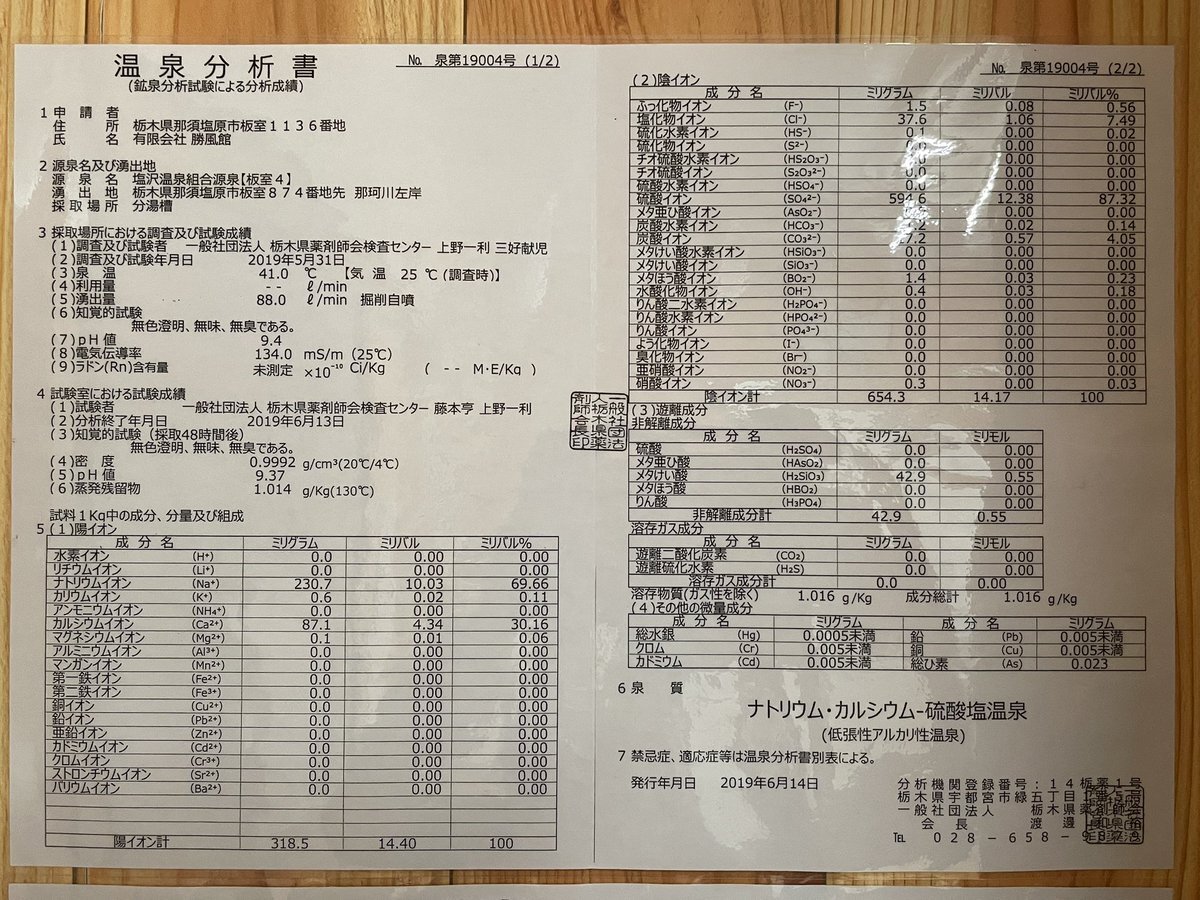 温泉分析書
(鉱泉分析試験による分析成績)
№ 泉第19004号 (1/2)
1 申請者
住所 栃木県那須塩原市板室1136番地
氏名 有限会社 勝風館
2 源泉名及び湧出地
源泉名 塩沢温泉組合源泉【板室4】
湧出地 栃木県那須塩原市板室874番地先 那珂川左岸
採取場所 分湯槽
3 採取場所における調査及び試験成績
(1)調査及び試験者 一般社団法人 栃木県薬剤師会検査センター 上野一利 三好献児
(2)調査及試験年月日 2019年5月31日
(3)泉温 41.0 ℃ 【気温 25 ℃ (調査時)】
(4)利用量 -- ℓ/min
(5)湧出量 88.0 ℓ/min 掘削自噴
(6)知覚的試験
無色澄明、無味、無臭である。
(7)pH 値 9.4
(8)電気伝導率 134.0 mS/m (25℃)
(9)ラドン(Rn)含有量 未測定 ×10⁻¹⁰ Ci/Kg ( -- M・E/Kg )
4 試験室における試験成績
(1)試験者 一般社団法人 栃木県薬剤師会検査センター 藤本亨 上野一利
(2)分析終了年月日 2019年6月13日
(3)知覚的試験 (採取48時間後)
無色澄明、無味、無臭である。
(4)密度 0.9992 g/cm³(20℃/4℃)
(5)pH 値 9.37
(6)蒸発残留物 1.014 g/Kg(130℃)
試料1Kg中の成分、分量及び組成
5 (1)陽イオン
成分名 ミリグラム ミリバル ミリバル%
水素イオン (H⁺) 0.0 0.00 0.00
リチウムイオン (Li⁺) 0.0 0.00 0.00
ナトリウムイオン (Na⁺) 230.7 10.03 69.66
カリウムイオン (K⁺) 0.6 0.02 0.11
アンモニウムイオン (NH₄⁺) 0.0 0.00 0.00
カルシウムイオン (Ca²⁺) 87.1 4.34 30.16
マグネシウムイオン (Mg²⁺) 0.1 0.01 0.06
アルミニウムイオン (Al³⁺) 0.0 0.00 0.00
マンガンイオン (Mn²⁺) 0.0 0.00 0.00
第一鉄イオン (Fe²⁺) 0.0 0.00 0.00
第二鉄イオン (Fe³⁺) 0.0 0.00 0.00
銅イオン (Cu²⁺) 0.0 0.00 0.00
鉛イオン (Pb²⁺) 0.0 0.00 0.00
亜鉛イオン (Zn²⁺) 0.0 0.00 0.00
カドミウムイオン (Cd²⁺) 0.0 0.00 0.00
クロムイオン (Cr³⁺) 0.0 0.00 0.00
ストロンチウムイオン (Sr²⁺) 0.0 0.00 0.00
バリウムイオン (Ba²⁺) 0.0 0.00 0.00
陽イオン計 318.5 14.40 100
一般社団法人栃木県薬剤師会長印
№ 泉第19004号 (2/2)
(2)陰イオン
成分名 ミリグラム ミリバル ミリバル%
ふっ化物イオン (F⁻) 1.5 0.08 0.56
塩化物イオン (Cl⁻) 37.6 1.06 7.49
硫化水素イオン (HS⁻) 0.1 0.00 0.02
硫化物イオン (S²⁻) 0.0 0.00 0.00
チオ硫酸水素イオン (HS₂O₃⁻) 0.00 0.00
チオ硫酸イオン (S₂O₃²⁻) 0.00 0.00
硫酸水素イオン (HSO₄⁻) 0.0 0.00 0.00
硫酸イオン (SO₄²⁻) 594.6 12.38 87.32
メタ亜ひ酸イオン (AsO₂⁻) 0.00 0.00
炭酸水素イオン (HCO₃⁻) 0.02 0.14
炭酸イオン (CO₃²⁻) 0.57 4.05
メタけい酸水素イオン (HSiO₃⁻) 0.0 0.00 0.00
メタけい酸イオン (SiO₃⁻) 0.0 0.00 0.00
メタほう酸イオン (BO₂⁻) 1.4 0.03 0.23
水酸化物イオン (OH⁻) 0.4 0.03 0.18
りん酸二水素イオン (H₂PO₄⁻) 0.0 0.00 0.00
りん酸水素イオン (HPO₄²⁻) 0.0 0.00 0.00
りん酸イオン (PO₄³⁻) 0.0 0.00 0.00
よう化物イオン (I⁻) 0.0 0.00 0.00
臭化物イオン (Br⁻) 0.0 0.00 0.00
亜硝酸イオン (NO₂⁻) 0.0 0.00 0.00
硝酸イオン (NO₃⁻) 0.3 0.00 0.03
陰イオン計 654.3 14.17 100
(3)遊離成分
非解離成分
成分名 ミリグラム ミリモル
硫酸 (H₂SO₄) 0.0 0.00
メタ亜ひ酸 (HAsO₂) 0.0 0.00
メタけい酸 (H₂SiO₃) 42.9 0.55
メタほう酸 (HBO₂) 0.0 0.00
りん酸 (H₃PO₄) 0.0 0.00
非解離成分計 42.9 0.55
溶存ガス成分
成分名 ミリグラム ミリモル
遊離二酸化炭素 (CO₂) 0.0 0.00
遊離硫化水素 (H₂S) 0.0 0.00
溶存ガス成分計 0.0 0.00
溶存物質(ガス性を除く) 1.016 g/Kg 成分総計 1.016 g/Kg
(4)その他の微量成分
成分名 ミリグラム 成分名 ミリグラム
総水銀 (Hg) 0.0005未満 鉛 (Pb) 0.005未満
クロム (Cr) 0.005未満 銅 (Cu) 0.005未満
カドミウム (Cd) 0.005未満 総ひ素 (As) 0.023
6 泉質
ナトリウム・カルシウム-硫酸塩温泉
(低張性アルカリ性温泉)
7 禁忌症、適応症等は温泉分析書別表による。
発行年月日 2019年6月14日
分析機関登録番号:14栃薬1号
栃木県宇都宮市緑五丁目
一般社団法人 栃木県薬剤師会
会長 渡邊
℡ 028-658-